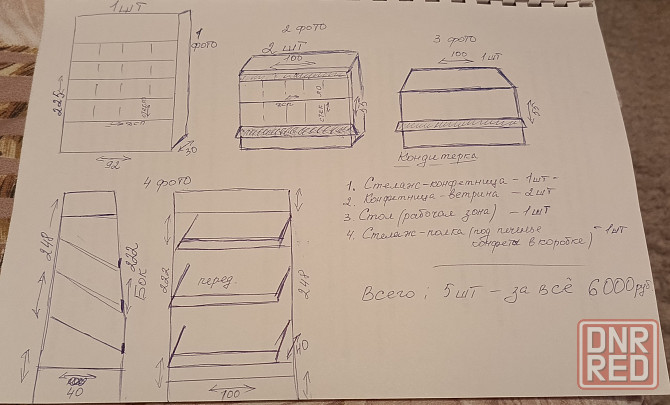 1 шт
1
фото
225
92
30
2 фото
2 шт
100
20
95
3 фото
100
1 шт
95
Кондитерка
4 фото
248
222
Бок
40
222
перед
248
40
100
1. Стелаж-конфетница - 1шт-
2. Конфетница-ветрина - 2шт
3. Стол (рабочая зона) - 1шт
4. Стелаж-полка (под печенье - 1шт
конфеты в коробке)
Всего: 5шт - за всё 6000руб
DNR
RED